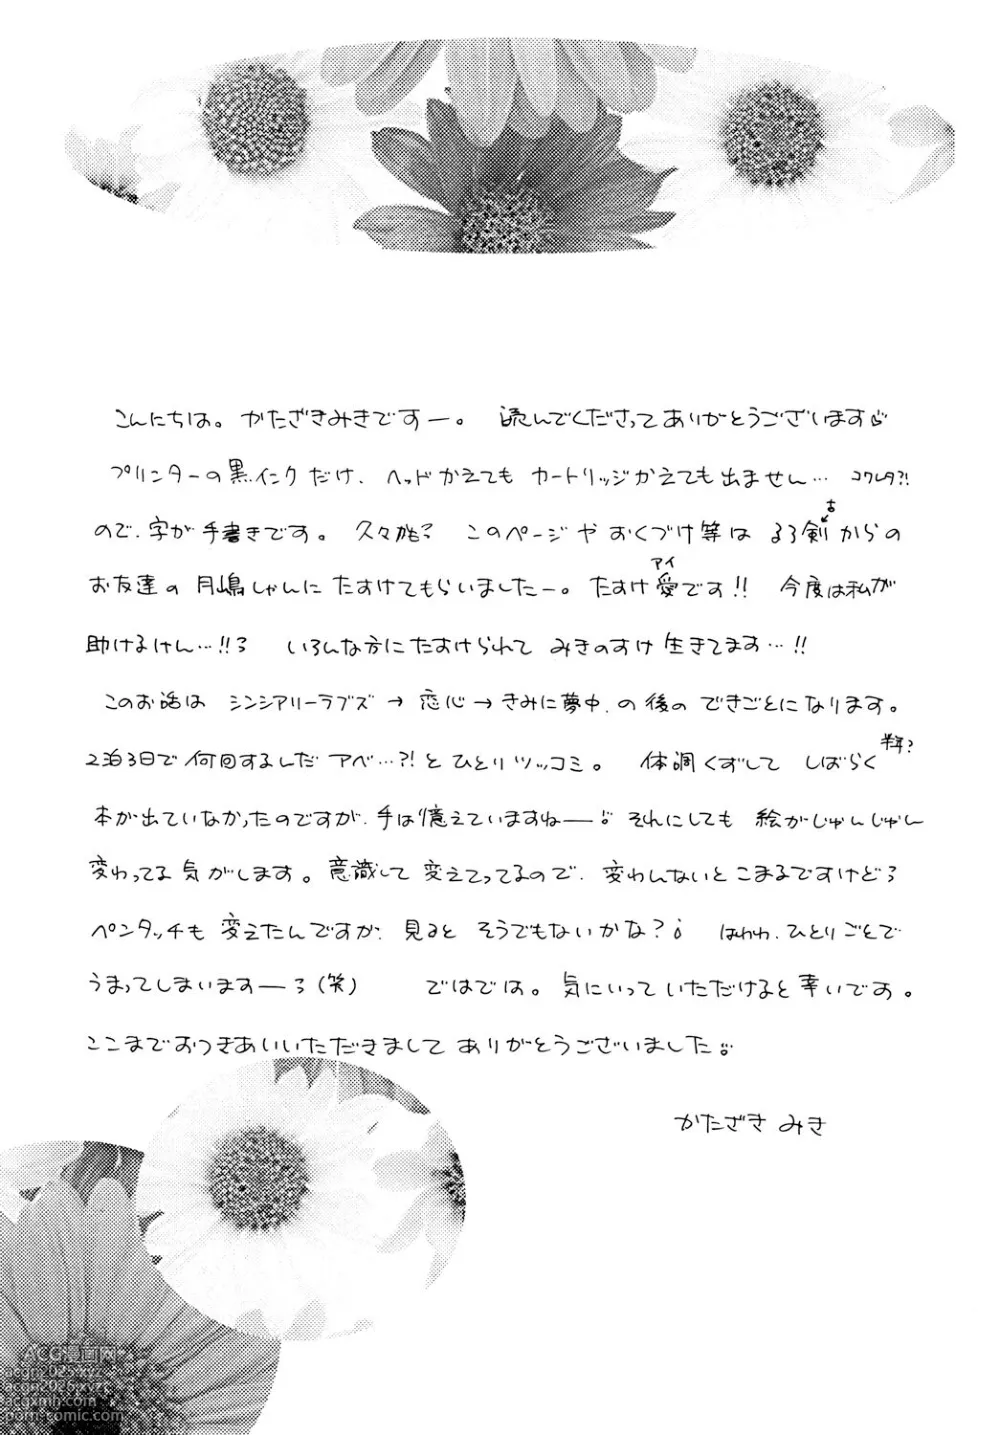 こんにちは。かたざきみきですー。 読んでくださってありがとうございます
プリンターの黒インクだけ、ヘッドかえても カートリッジかえても出ません… コワレタ?!
ので、字が手書きです。 久々かも? このページや おくづけ等は るろ剣からの
古
お友達の 月嶋しゃんに たすけてもらいましたー。たすけ愛です!! 今度は私が
アイ
助けるけん…!!? いろんな方にたすけられて みきのすけ 生きてます…!!
このお話は シンシアリーラブズ → 恋心 → きみに夢中、の後の できごとになります。
2泊3日で 何回するんだ アベ…?! と ひとりツッコミ。 体調くずして しばらく
半年?
本が出ていなかったのですが、手は憶えていますねー それにしても 絵がじゅんじゅん
変わってる気がします。意識して 変えてってるので、変わんないと こまるですけど?
ペンタッチも 変えたんですが、見ると そうでもないかな? はわわ、ひとりごとで
うまってしまいますー (笑) ではでは。気にいって いただけると 幸いです。
ここまでおつきあいいただきまして ありがとうございました
かたざき みき
ACG漫画网
acgn2025.xyz
acgn2026.xyz
acgxmh.com
porn-comic.com